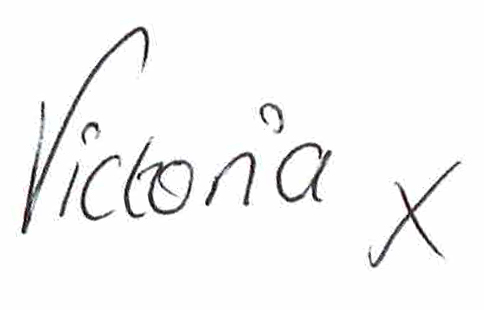 Victoria x